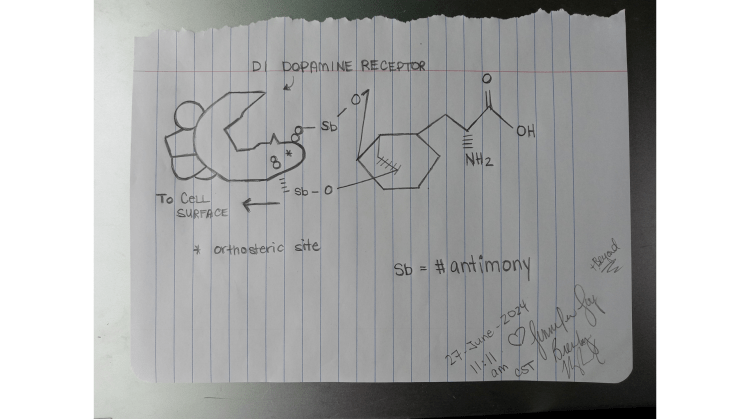 D1 DOPAMINE RECEPTOR
O
O
Sb
OH
8
*
NH2
Sb - O
TO CELL
SURFACE
* orthosteric site
Sb = # antimony
+Beyond
27-June-2024
11:11
am CST
Jennifer